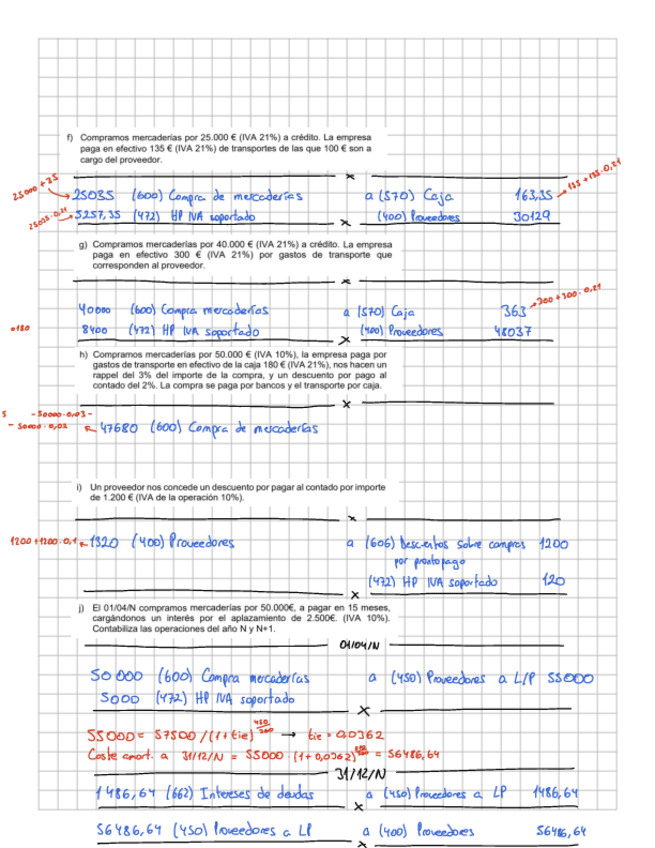 f) Compramos mercaderías por 25.000 € (IVA 21%) a crédito. La empresa
paga en efectivo 135 € (IVA 21%) de transportes de las que 100 € son a
cargo del proveedor.
25000 + 35
25035 (600) Compra de mercaderías a (570) Caja 163,35 135 + 135 · 0,21
25035 · 0,21 5257,35 (472) HP IVA soportado (400) Proveedores 30129
g) Compramos mercaderías por 40.000 € (IVA 21%) a crédito. La empresa
paga en efectivo 300 € (IVA 21%) por gastos de transporte que
corresponden al proveedor.
40000 (600) Compra mercaderías a (570) Caja 363 300 + 300 · 0,21
8400 (472) HP IVA soportado (400) Proveedores 48037
h) Compramos mercaderías por 50.000 € (IVA 10%), la empresa paga por
gastos de transporte en efectivo de la caja 180 € (IVA 21%), nos hacen un
rappel del 3% del importe de la compra, y un descuento por pago al
contado del 2%. La compra se paga por bancos y el transporte por caja.
- 50000 · 0,03 -
- 50000 · 0,02 47680 (600) Compra de mercaderías
i) Un proveedor nos concede un descuento por pagar al contado por importe
de 1.200 € (IVA de la operación 10%).
1200 + 1200 · 0,1 1320 (400) Proveedores a (606) Descuentos sobre compras 1200
por prontopago
(472) HP IVA soportado 120
j) El 01/04/N compramos mercaderías por 50.000€, a pagar en 15 meses,
cargándonos un interés por el aplazamiento de 2.500€. (IVA 10%).
Contabiliza las operaciones del año N y N+1.
01/04/N
50000 (600) Compra mercaderías a (450) Proveedores a L/P 55000
5000 (472) HP IVA soportado
55000 = 57500 / (1 + tie) 450/360 → tie = 0,0362
Coste amort. a 31/12/N = 55000 · (1 + 0,0362) = 56486,64
31/12/N
1486,64 (662) Intereses de deudas a (450) Proveedores a LP 1486,64
56486,64 (450) Proveedores a LP a (400) Proveedores 56486,64